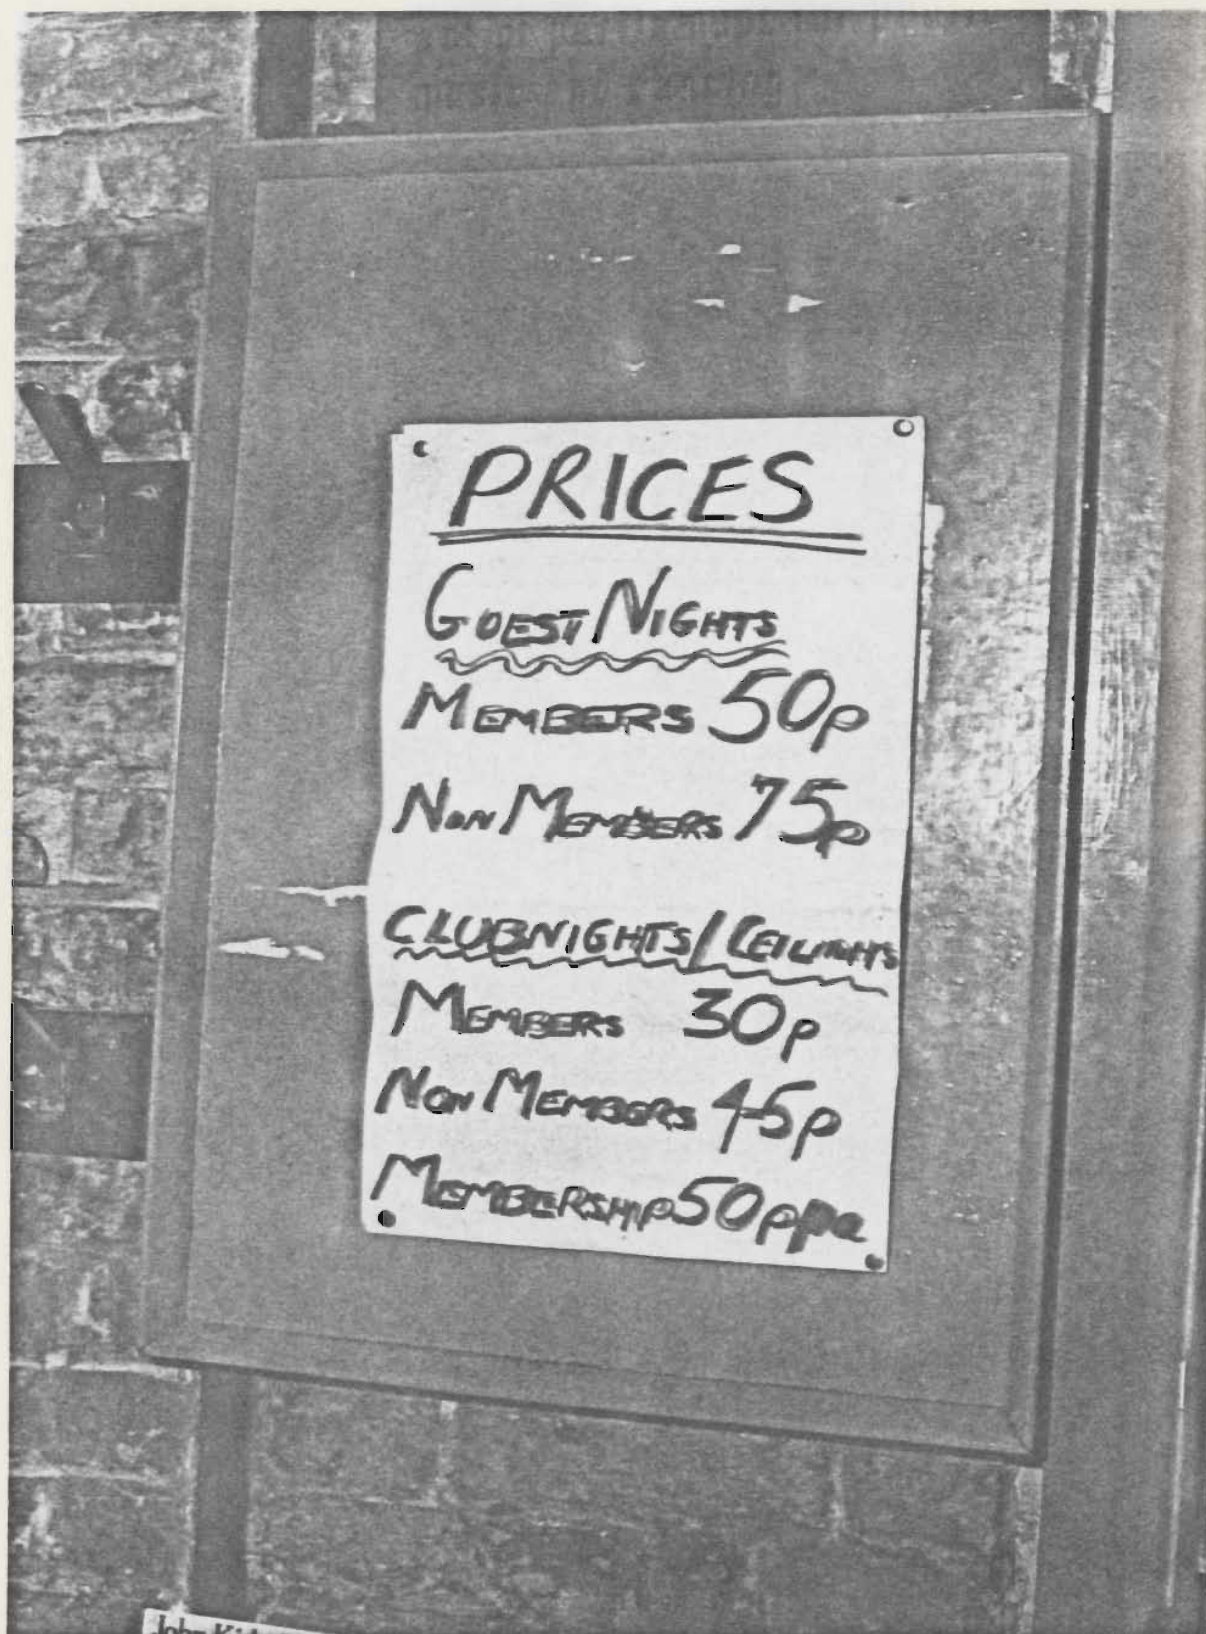 PRICES
GUEST NIGHTS
MEMBERS 50p
NON MEMBERS 75p
CLUBNIGHTS/
MEMBERS 30p
NON MEMBERS 45p
MEMBERSHIP 50ppa
John